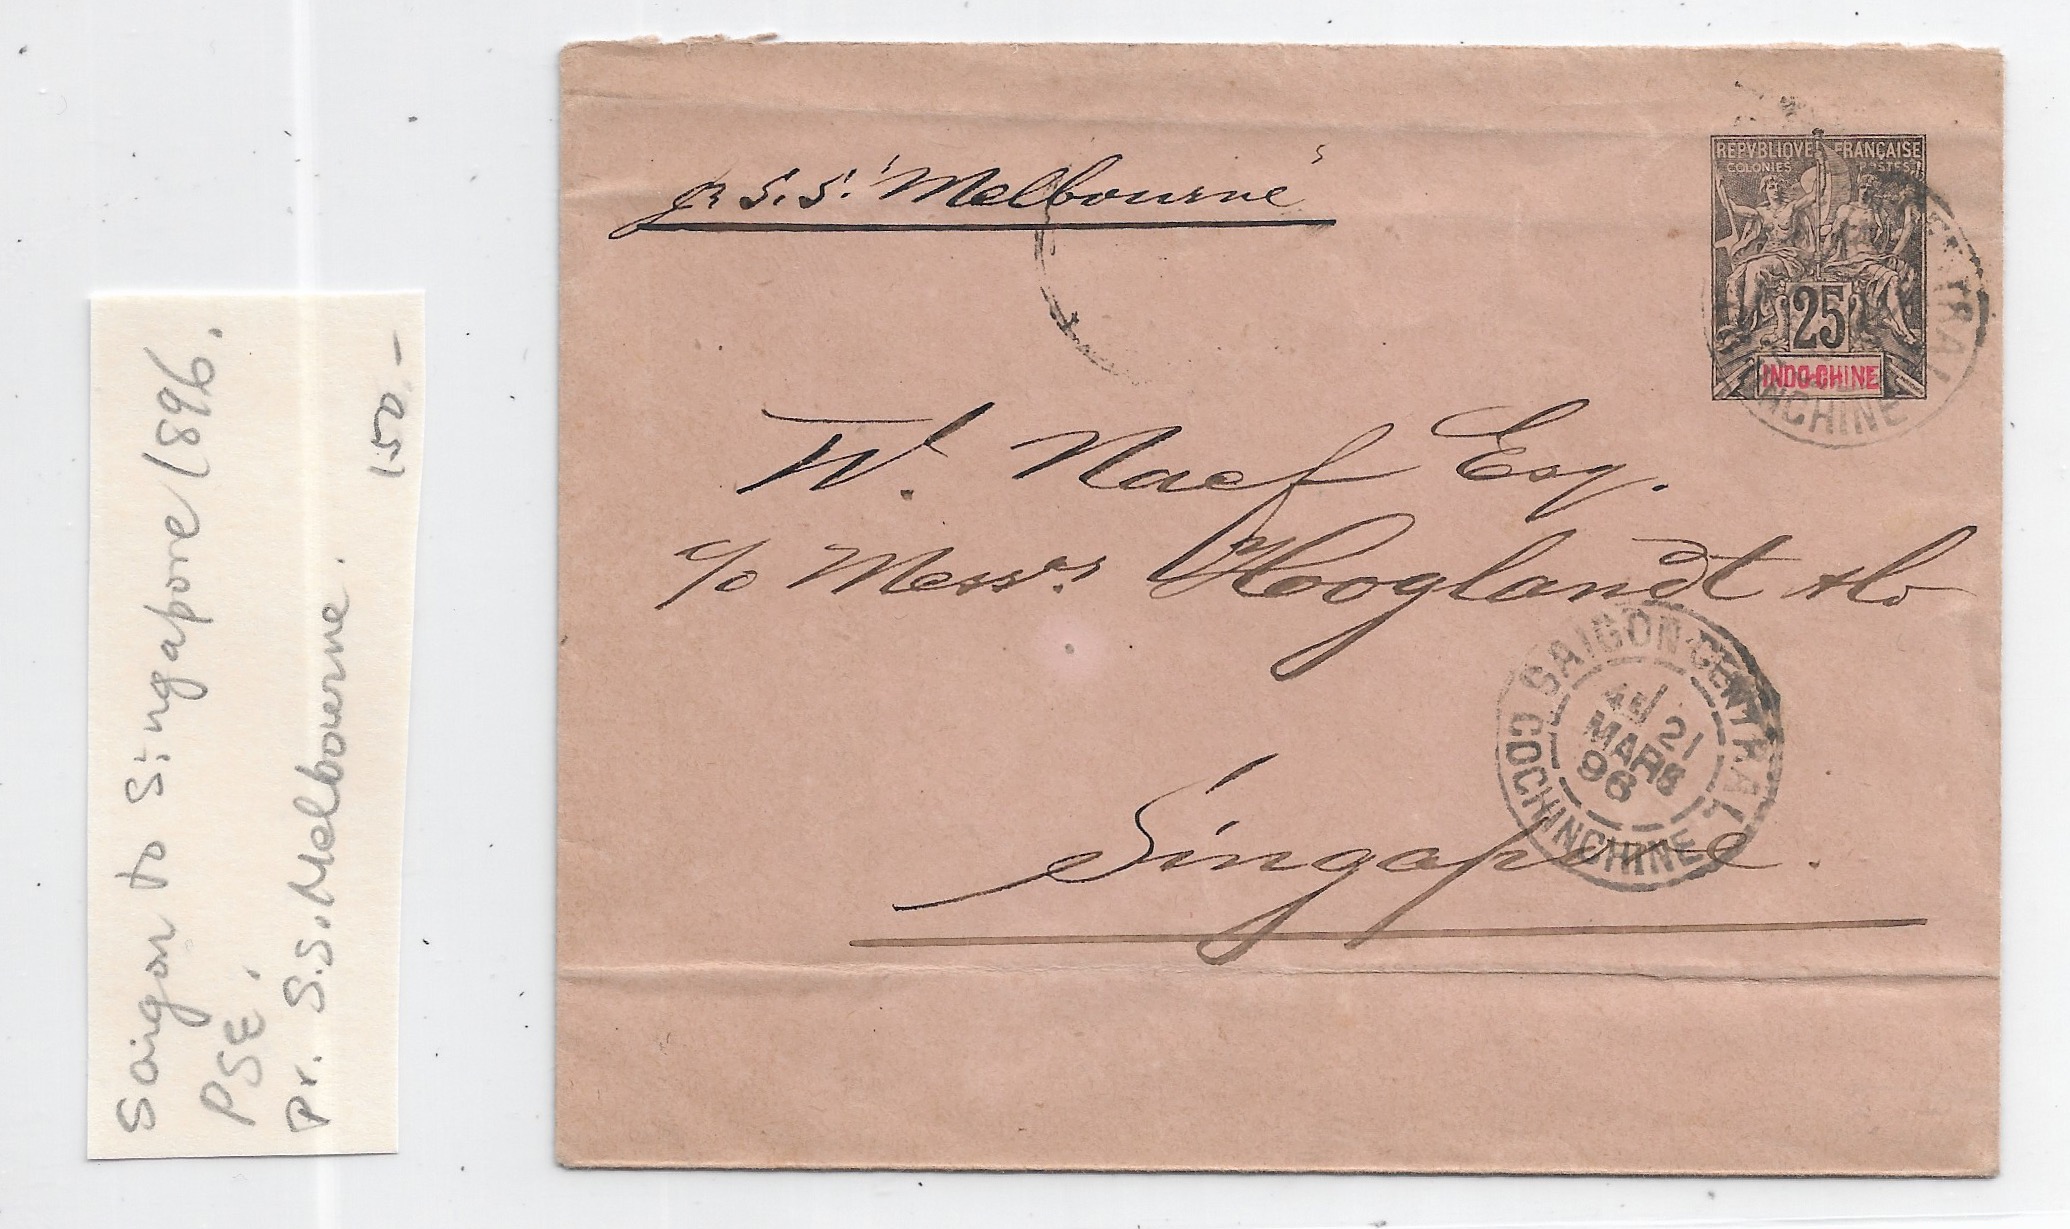 Saigon to Singapore 1896.
PSE.
Pr. S.S. Melbourne. 150.-
pr S.S. "Melbourne"
REPVBLIQVE FRANÇAISE
COLONIES POSTES
25
INDO-CHINE
CENTRAL
CHINE
W. Naef Esq.
c/o Messrs. Hooglandt & Co
SAIGON-CENTRAL
21
MARS
96
COCHINCHINE
Singapore.